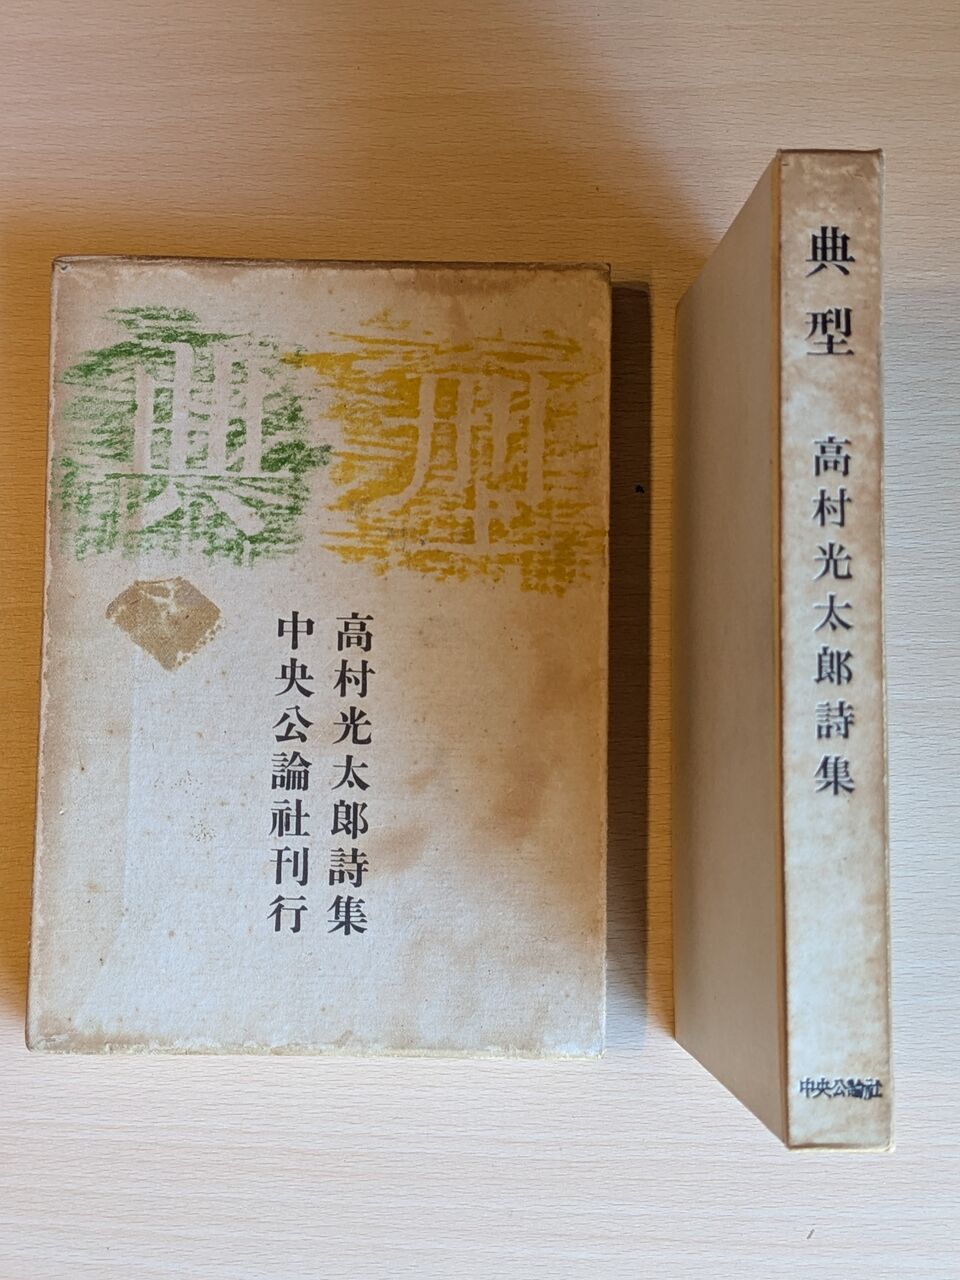 典型
高村光太郎詩集
中央公論社刊行
典型
高村光太郎詩集
中央公論社